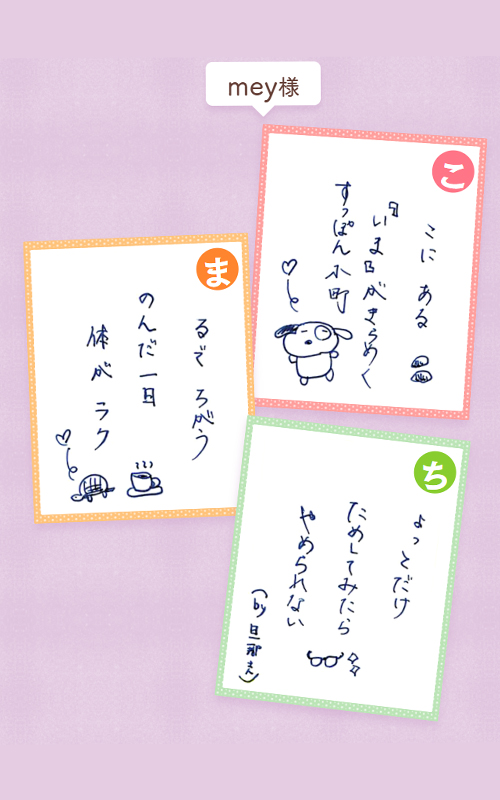 mey様
こ
こに ある
「いま日がきらめく
すっぽん小町
ま
るで ちがう
のんだ一日
体が ラク
ち
ょっとだけ
ためしてみたら
やめられない
(by 旦那さん)